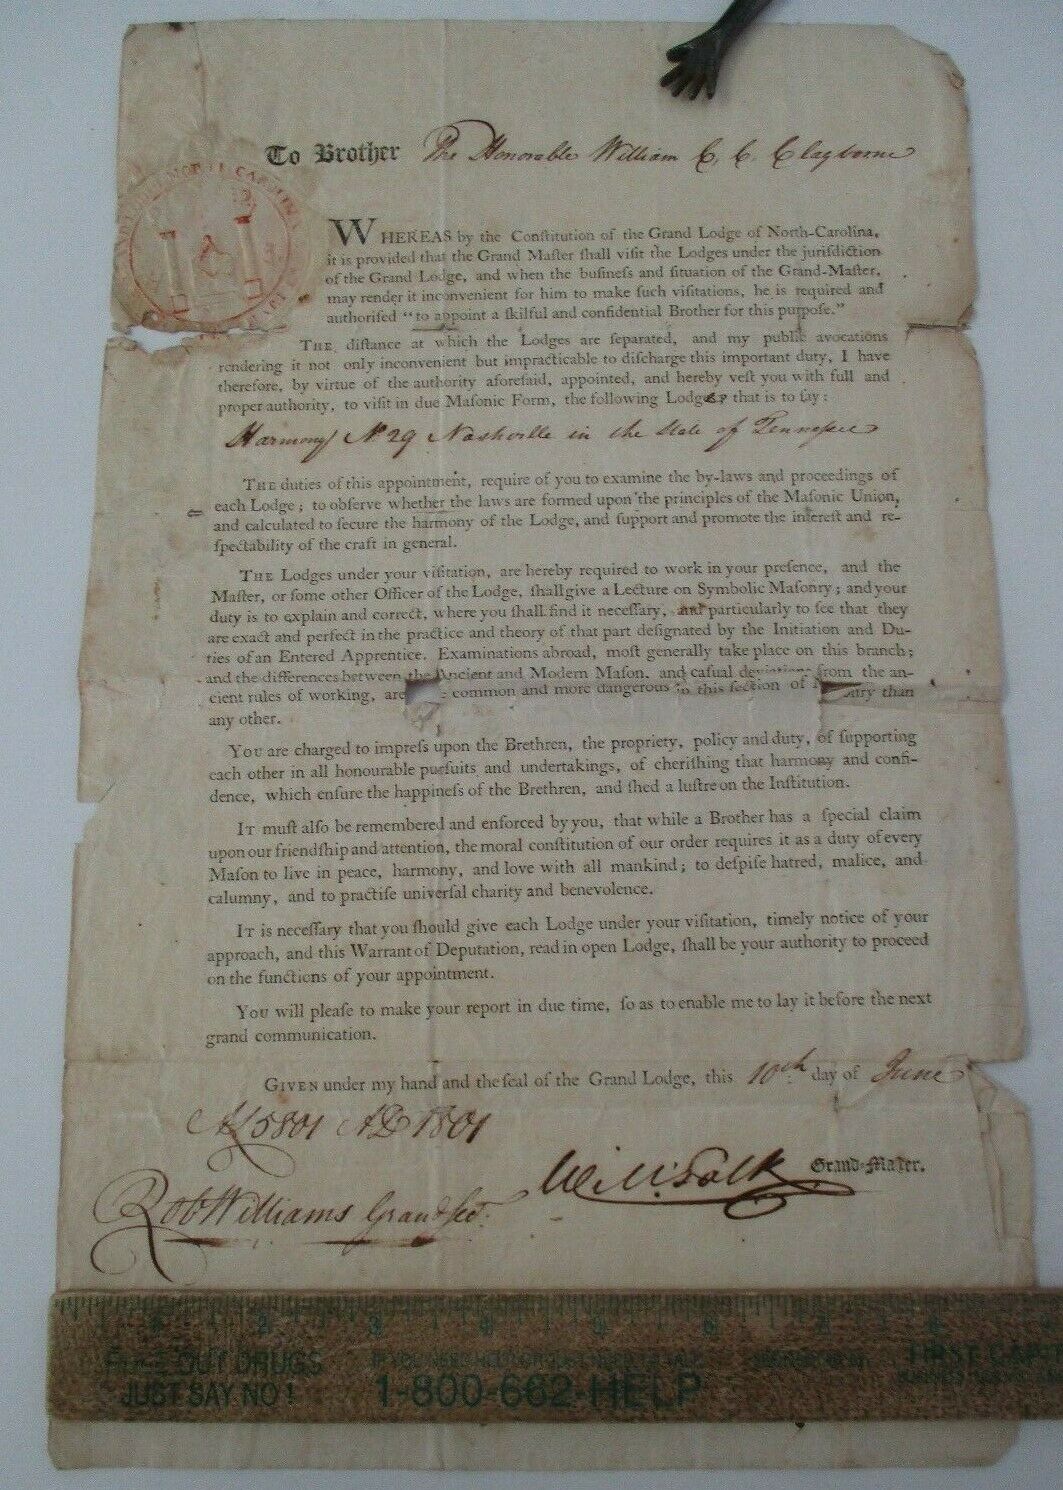 To Brother The Honorable William C. C. Clayborne
NORTH CAROLINA
WHEREAS by the Conſtitution of the Grand Lodge of North-Carolina,
it is provided that the Grand Maſter ſhall viſit the Lodges under the jurisdiction
of the Grand Lodge, and when the buſineſs and ſituation of the Grand-Maſter,
may render it inconvenient for him to make ſuch viſitations, he is required and
authoriſed "to appoint a ſkilful and confidential Brother for this purpoſe."
THE diſtance at which the Lodges are ſeparated, and my public avocations
rendering it not only inconvenient but impracticable to diſcharge this important duty, I have
therefore, by virtue of the authority aforeſaid, appointed, and hereby veſt you with full and
proper authority, to viſit in due Maſonic Form, the following Lodge that is to ſay:
Harmony No 29 Nashville in the State of Tennessee
THE duties of this appointment, require of you to examine the by-laws and proceedings of
each Lodge; to obſerve whether the laws are formed upon the principles of the Maſonic Union,
and calculated to ſecure the harmony of the Lodge, and ſupport and promote the intereſt and re-
ſpectability of the craft in general.
THE Lodges under your viſitation, are hereby required to work in your preſence, and the
Maſter, or ſome other Officer of the Lodge, ſhall give a Lecture on Symbolic Maſonry; and your
duty is to explain and correct, where you ſhall find it neceſſary, and particularly to ſee that they
are exact and perfect in the practice and theory of that part deſignated by the Initiation and Du-
ties of an Entered Apprentice. Examinations abroad, moſt generally take place on this branch;
and the differences between the Ancient and Modern Maſon, and caſual deviations from the an-
cient rules of working, are common and more dangerous in this ſection of than
any other.
YOU are charged to impreſs upon the Brethren, the propriety, policy and duty, of ſupporting
each other in all honourable purſuits and undertakings, of cheriſhing that harmony and confi-
dence, which enſure the happineſs of the Brethren, and ſhed a luſtre on the Inſtitution.
IT muſt alſo be remembered and enforced by you, that while a Brother has a ſpecial claim
upon our friendſhip and attention, the moral conſtitution of our order requires it as a duty of every
Maſon to live in peace, harmony, and love with all mankind; to deſpiſe hatred, malice, and
calumny, and to practiſe univerſal charity and benevolence.
IT is neceſſary that you ſhould give each Lodge under your viſitation, timely notice of your
approach, and this Warrant of Deputation, read in open Lodge, ſhall be your authority to proceed
on the functions of your appointment.
YOU will pleaſe to make your report in due time, ſo as to enable me to lay it before the next
grand communication.
GIVEN under my hand and the ſeal of the Grand Lodge, this 10th day of June
AL 5801 AD 1801
Wm Polk Grand-Maſter.
Rob Williams Grand Sec.
1 2 3 4 5 6 7 8
OUT DRUGS
JUST SAY NO!
1-800-662-HELP
FIRST